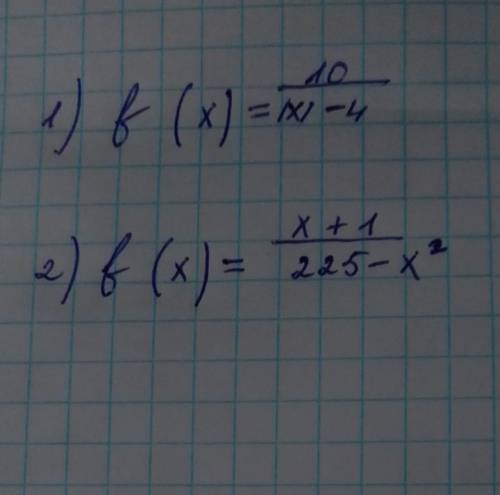 1) f (x) = 10 / |x| - 4
2) f (x) = x + 1 / 225 - x²